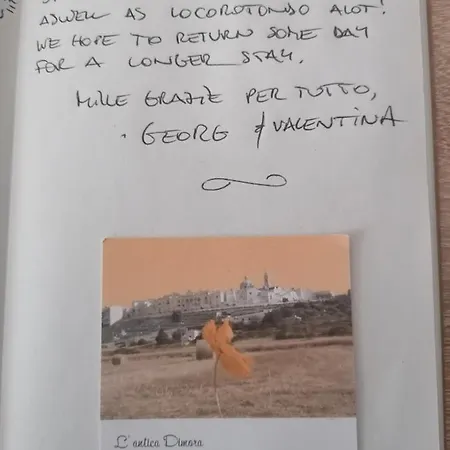 ASWELL AS LOCOROTONDO ALOT!
WE HOPE TO RETURN SOME DAY
FOR A LONGER STAY.
MILLE GRAZIE PER TUTTO,
GEORG & VALENTINA
L'antica Dimora